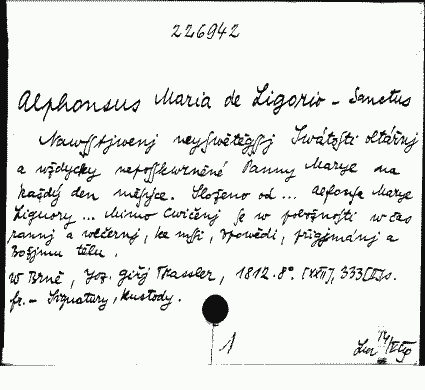 226942
Alphonsus Maria de Ligorio - Sanctus
Nawsstjwenj neyswětěgssj Swátosti oltářnj
a wždycky neposskwrněné Panny Marye na
každý den měsýce. Složeno od ... Alfonsa Marye
Liguory ... Mimo Cwičenj se w pobožnosti w čas
rannj a wečernj, ke mssi, zpowědi, přigjmánj a
Božjmu tělu.
W Brně, Joz. Giřj Trassler, 1812. 8°. [XXII], 333 [II] s.
fr. - Signatury, kustody.
1